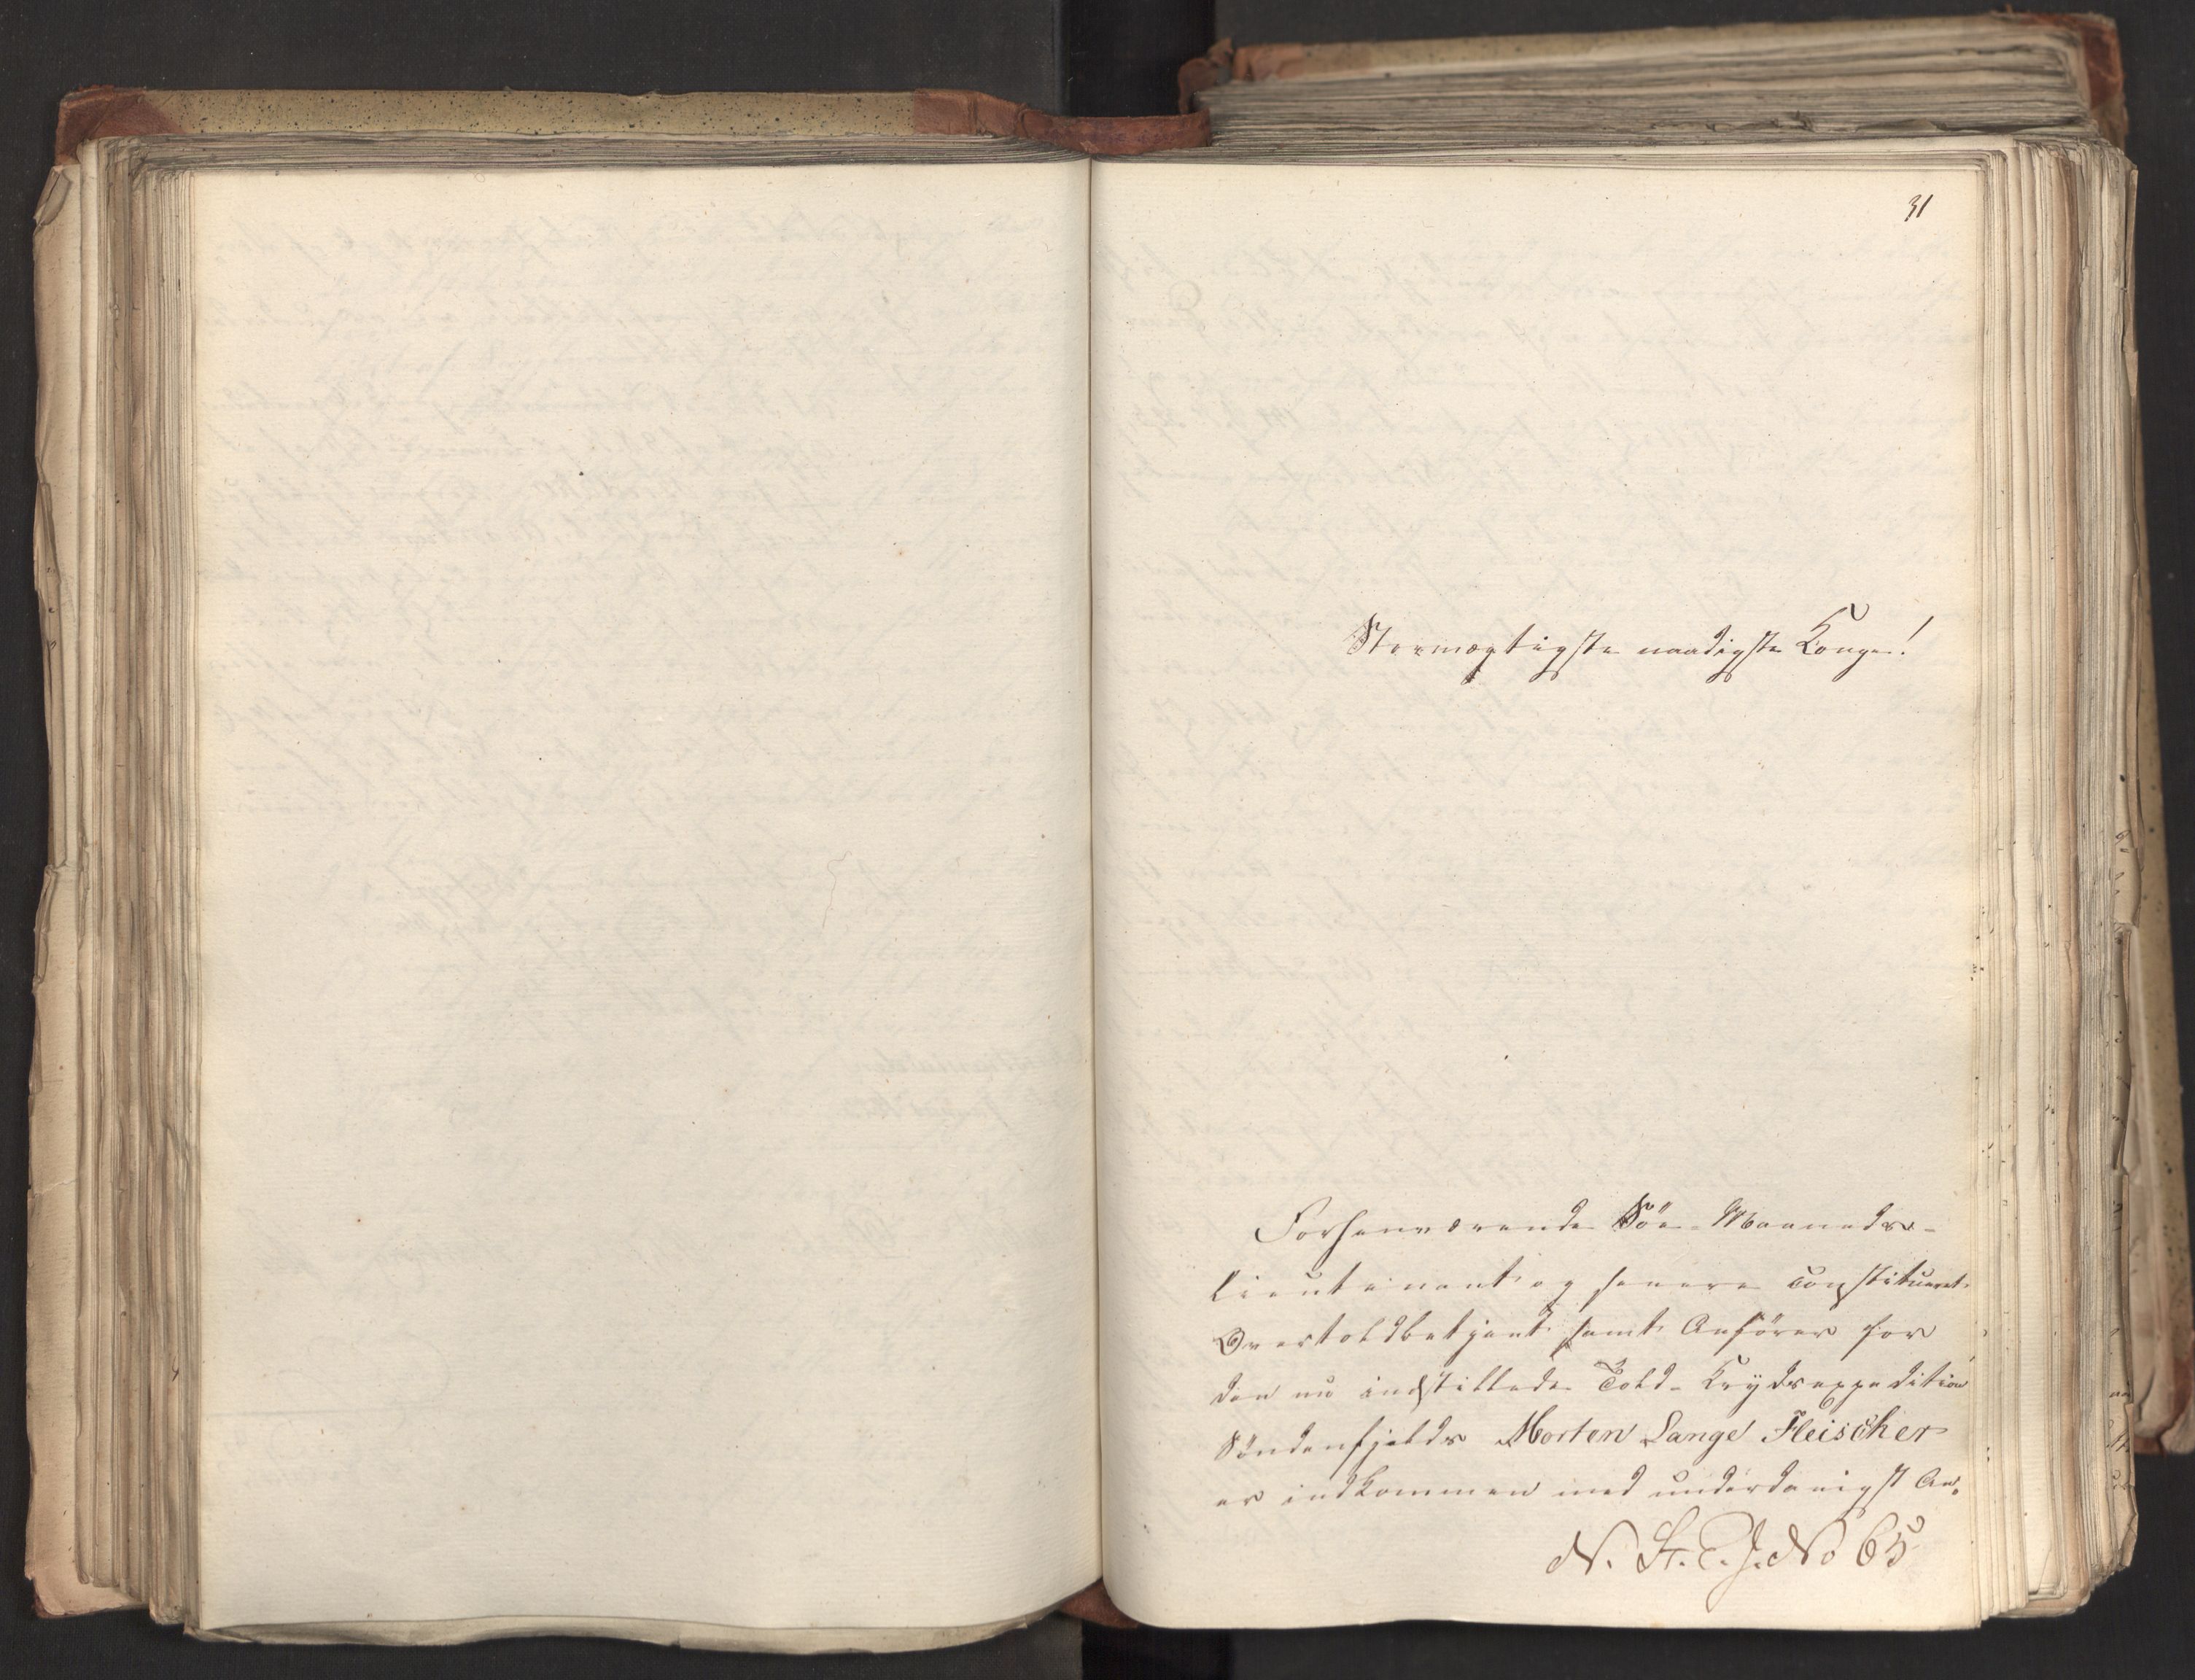 31
Stormægtigste naadigste Konge!
Forhenværende Söe-Maaneds-
lieutenant og senere constitueret
Overtoldbetjent samt Anförer for
den nu indstillede Told-Krydsexpedition
Söndenfjelds Morten Lange Fleischer
er indkommen med underdanigst An-
N. St. C. J. No 65